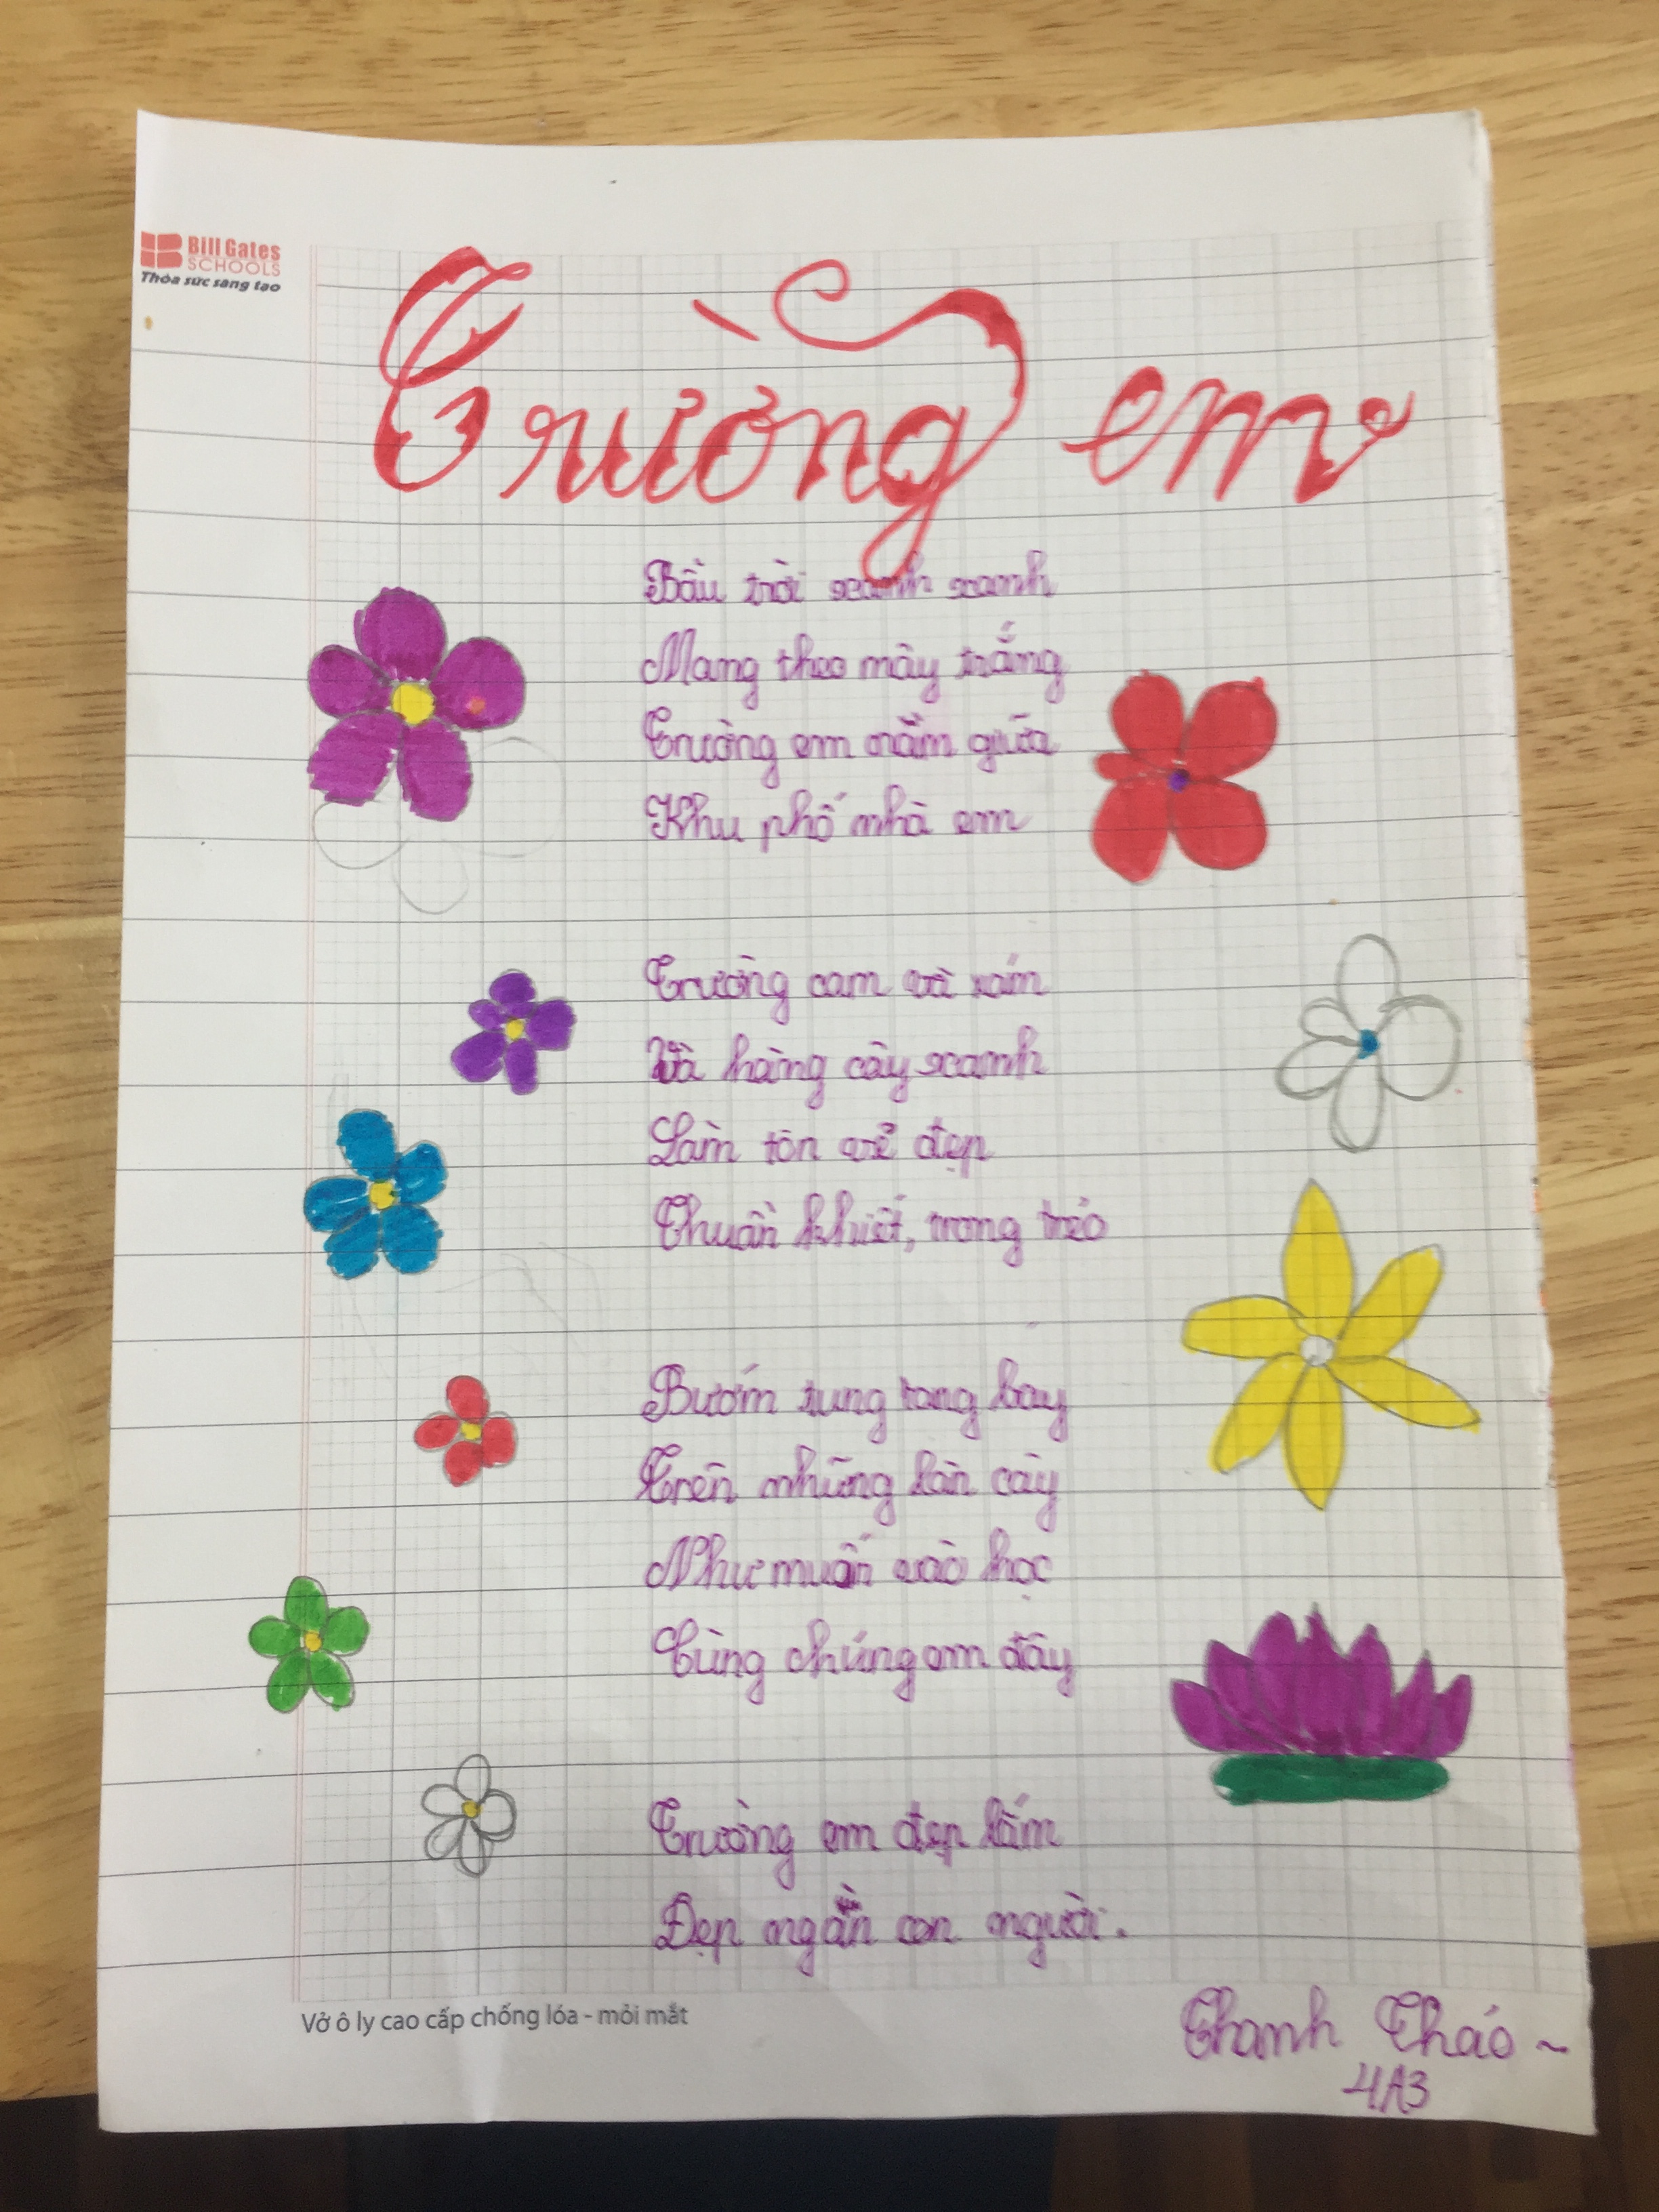 Bill Gates
SCHOOLS
Thỏa sức sáng tạo
Trường em
Bầu trời xanh xanh
Mang theo mây trắng
Trường em nằm giữa
Khu phố nhà em
Trường cam và xám
Và hàng cây xanh
Làm tôn vẻ đẹp
Thuần khiết, trong trẻo
Bướm tung tang bay
Trên những làn cây
Như muốn vào học
Cùng chúng em đây
Trường em đẹp lắm
Đẹp ngần con người.
Vở ô ly cao cấp chống lóa - mỏi mắt
Thanh Thảo ~
4A3